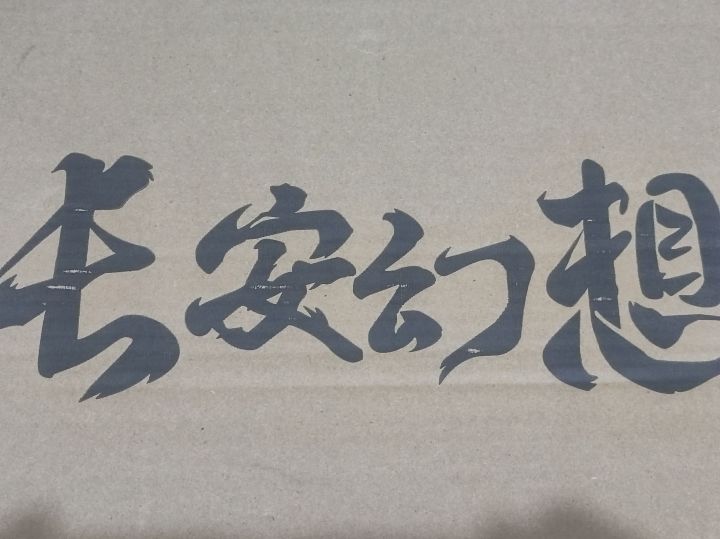 长安幻想